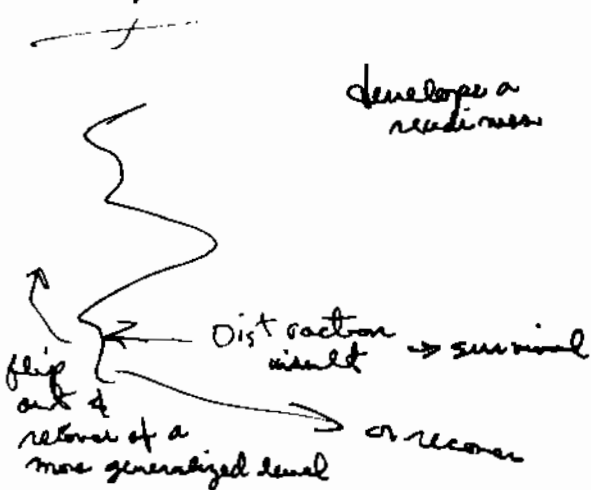 develope a
readiness
Distraction
insult → survival
flip
out &
recover of a
more generalized level
or recover